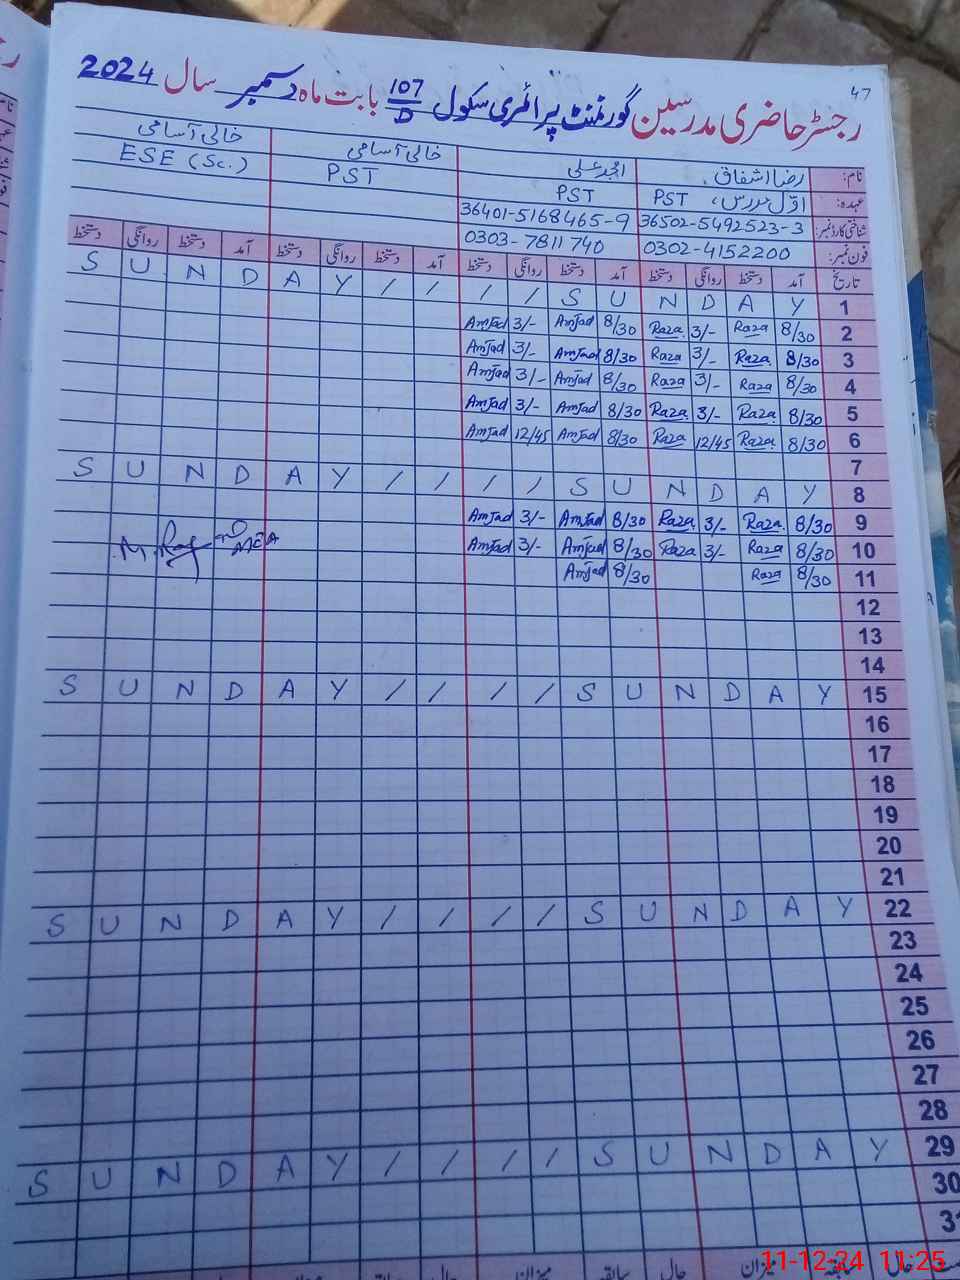 47
رجسٹر حاضری مدرسین گورنمنٹ پرائمری سکول 107/D بابت ماہ دسمبر سال 2024
نام: رضا اشفاق امجد علی خالی آسامی خالی آسامی
عہدہ: اوّل مدرس، PST PST PST ESE (Sc.)
شناختی کارڈ نمبر: 36502-5492523-3 36401-5168465-9
فون نمبر: 0302-4152200 0303-7811740
تاریخ آمد دستخط روانگی دستخط آمد دستخط روانگی دستخط آمد دستخط روانگی دستخط آمد دستخط روانگی دستخط
S U N D A Y / / / / S U N D A Y 1
Amjad 3/- Amjad 8/30 Raza 3/- Raza 8/30 2
Amjad 3/- Amjad 8/30 Raza 3/- Raza 8/30 3
Amjad 3/- Amjad 8/30 Raza 3/- Raza 8/30 4
Amjad 3/- Amjad 8/30 Raza 3/- Raza 8/30 5
Amjad 12/45 Amjad 8/30 Raza 12/45 Raza 8/30 6
7
S U N D A Y / / / / S U N D A Y 8
Amjad 3/- Amjad 8/30 Raza 3/- Raza 8/30 9
AEA Amjad 3/- Amjad 8/30 Raza 3/- Raza 8/30 10
Amjad 8/30 Raza 8/30 11
12
13
14
S U N D A Y / / / / S U N D A Y 15
16
17
18
19
20
21
S U N D A Y / / / / S U N D A Y 22
23
24
25
26
27
28
S U N D A Y / / / / S U N D A Y 29
30
31
حال سابقہ میزان حال سابقہ میزان حال
11-12-24 11:25